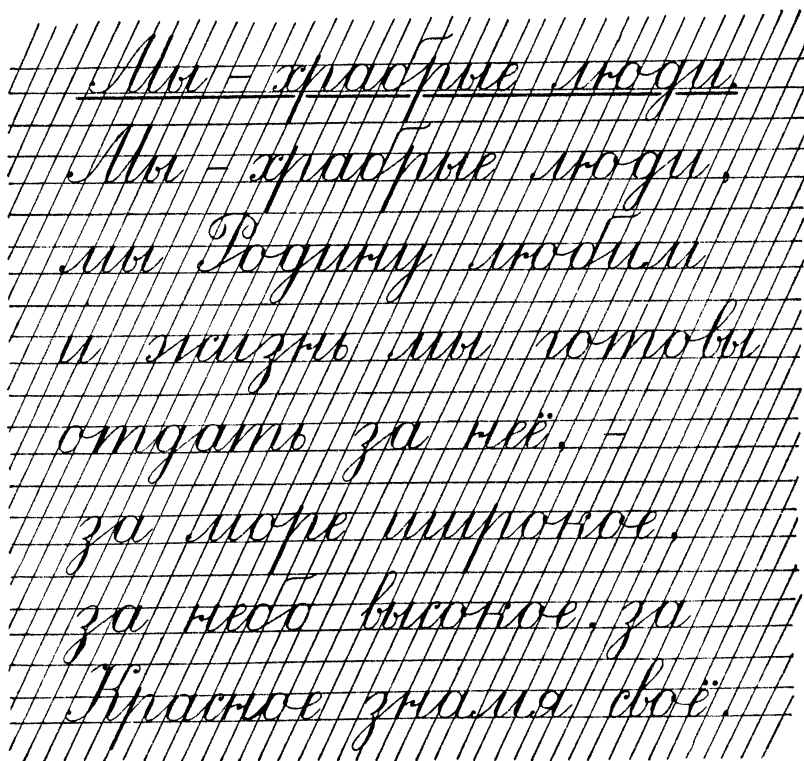 Мы – храбрые люди.
Мы – храбрые люди,
мы Родину любим
и жизнь мы готовы
отдать за неё, –
за море широкое,
за небо высокое, за
Красное знамя своё.